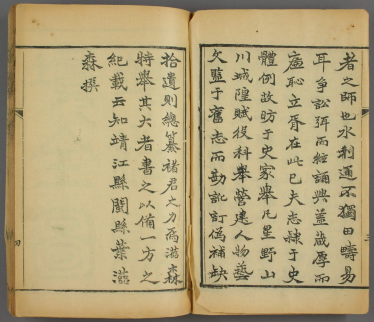 者之師也水利通不獨田疇易
耳爭訟弭而絃誦興蓋藏厚而
廉恥立胥在此已夫志隸于史
體例故昉于史家舉凡星野山
川城隍賦役科舉營建人物藝
文監于舊志而勘訛訂偽補缺
拾遺則總纂諸君之力而滋森
特舉其大者書之以備一方之
紀載云知靖江縣閩縣葉滋
森撰
四